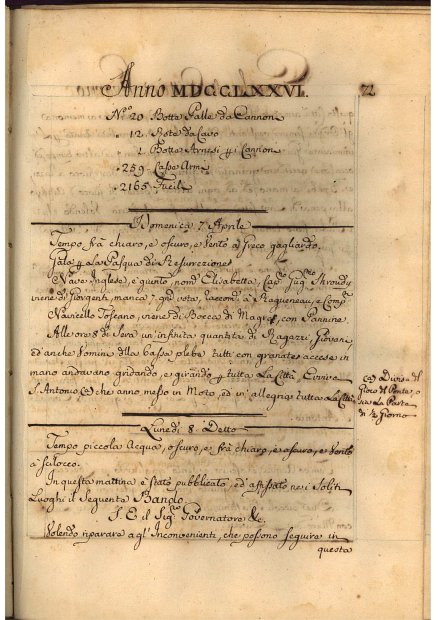 Anno MDCCLXXVI. 72
N.º 20 Botte Palle da Cannon
" 12 Rote da Cavo
" 1 Botta Arnesi p i Cannon
" 259 Casse Armi
" 2165 Fucili
Domenica 7 Aprile
Tempo frà chiaro, e oscuro, e Vento à Greco gagliardo.
Gala p La Pasqua di Resurrezione
Nave Inglese, e quinto, nom.ª Elisabetta, Cap.º Gug.mo
viene di Giorgenti, manca gni vista, raccom. à Ragueneau, e Comp.
Navicello Toscano, viene di Bocca di Magra, con Pannine
Alle ore 8 di Sera un'infinita quantità di Ragazzi, Giovani
ed anche Uomini della bassa plebe tutti con granate accese in
mano andavano gridando, e girando p tutta La Città, Evviva
S. Antonio (a) che anno messo in Moto, ed in allegria tutta La Città
(a) Divisa del
Gioco del Ponte,
sia La Parte
di Giorno
Lunedì 8. Detto
Tempo piccola Acqua, oscuro, e frà chiaro, e oscuro, e Vento
à scilocco.
In questa mattina è stato pubblicato, ed affissato nei Soliti
Luoghi il Seguente Bando.
S. E. il Sig.e Governatore &c.
Volendo riparare agl'Inconvenienti, che possono seguire in
questa